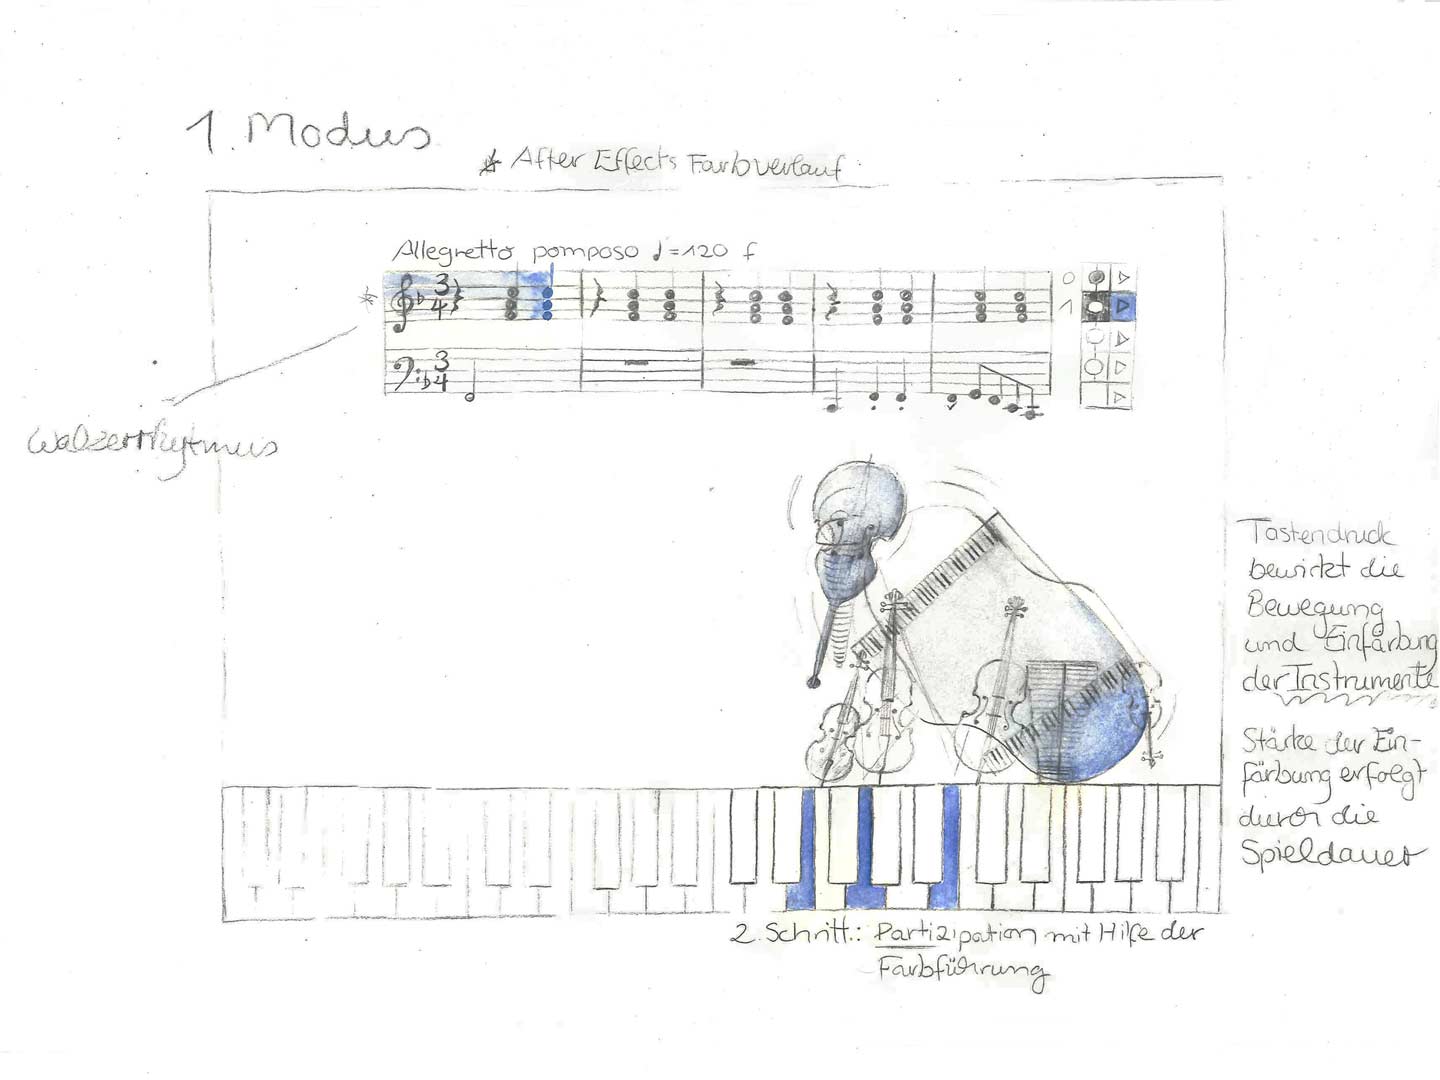 1. Modus
* After Effects Farbverlauf
Allegretto pomposo ♩=120 f
*
3
4
3
4
0
1
Walzerrhytmus
Tastendruck
bewirkt die
Bewegung
und Einfärbung
der Instrumente
Stärke der Ein-
färbung erfolgt
durch die
Spieldauer
2. Schritt.: Partizipation mit Hilfe der
Farbführung